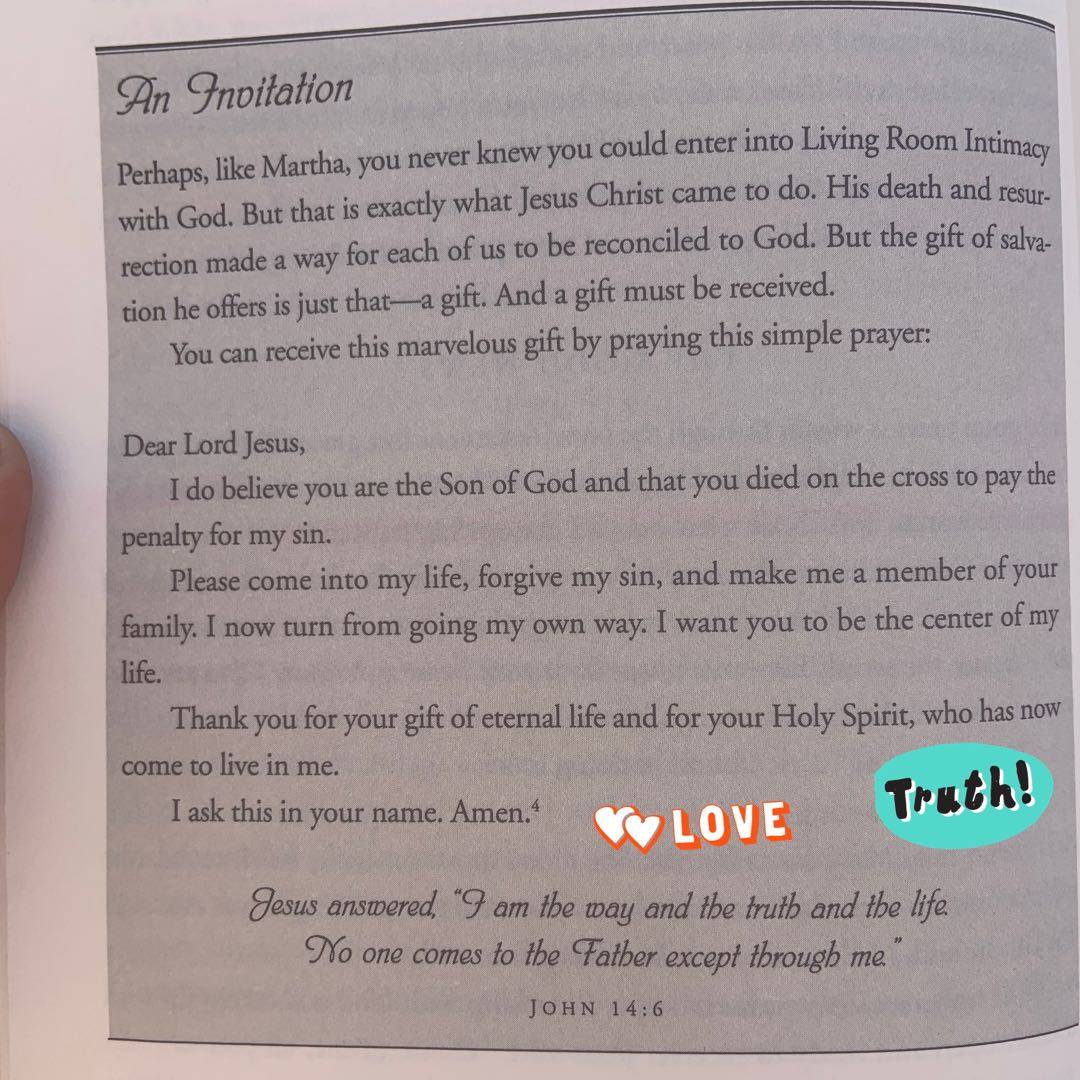 An Invitation
Perhaps, like Martha, you never knew you could enter into Living Room Intimacy
with God. But that is exactly what Jesus Christ came to do. His death and resur-
rection made a way for each of us to be reconciled to God. But the gift of salva-
tion he offers is just that—a gift. And a gift must be received.
You can receive this marvelous gift by praying this simple prayer:
Dear Lord Jesus,
I do believe you are the Son of God and that you died on the cross to pay the
penalty for my sin.
Please come into my life, forgive my sin, and make me a member of your
family. I now turn from going my own way. I want you to be the center of my
life.
Thank you for your gift of eternal life and for your Holy Spirit, who has now
come to live in me.
I ask this in your name. Amen.⁴
LOVE
Truth!
Jesus answered, “I am the way and the truth and the life.
No one comes to the Father except through me.”
JOHN 14:6